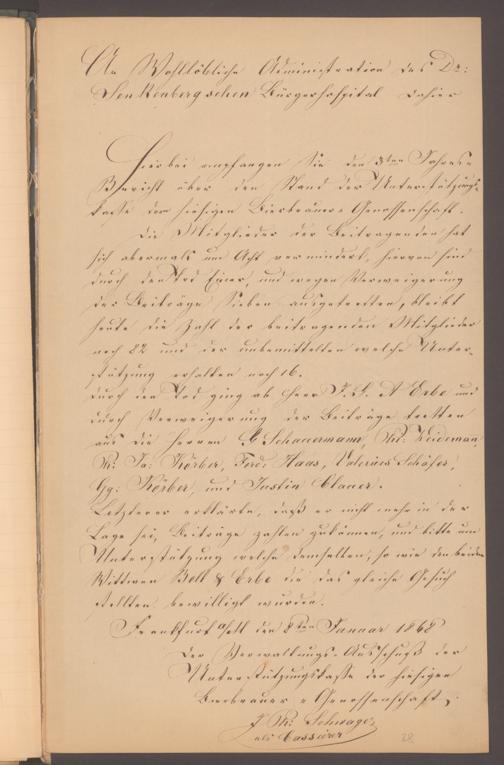 An Wohllöbliche Administration des Dr:
Senkenbergschen Bürgerhospital dahier
Hierbei empfangen Sie den 3ten Jahres-
Bericht über den Stand der Unterstützungs-
kasse der hiesigen Bierbrauer-Genossenschaft.
Die Mitglieder der Beitragenden hat
sich abermals um Acht vermindert, hiervon sind
durch den Tod Einer, und wegen Verweigerung
der Beiträge Sieben ausgetretten, bleibt
heute die Zahl der beitragenden Mitglieder
noch 82 und der unbemittelten welche Unter-
stützung erhalten noch 16.
Durch den Tod ging ab Herr J. G. A Erbe und
durch Verweigerung der Beiträge tretten
aus die Herren Schauermann,
Ph: Ja: Körber, Ferd: Haas, Valerius Schäfer,
Gg: Körber, und Justin Clauer.
Letzterer erklärte, daß er nicht mehr in der
Lage sei, Beiträge zahlen zu können, und bitte um
Unterstützung welche demselben, so wie den beiden
Wittwen Bolt & Erbe die das gleiche Gesuch
stellten bewilligt wurden.
Frankfurt a/M den 8ten Januar 1868
Der Verwaltungs-Ausschuß der
Unterstützungskasse der hiesigen
Bierbrauer-Genossenschaft,
J. Ph: Schwager
als Cassierer
28